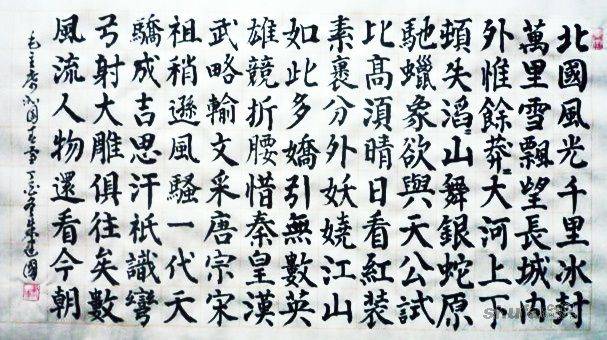 北國風光千里冰封
萬里雪飄望長城内
外惟餘莽〻大河上下
頓失滔〻山舞銀蛇原
馳蠟象欲與天公試
比高須晴日看紅装
素裹分外妖嬈江山
如此多嬌引無數英
雄競折腰惜秦皇漢
武略輸文采唐宗宋
祖稍遜風騷一代天
驕成吉思汗祇識彎
弓射大雕俱往矣數
風流人物還看今朝
毛主席沁园春雪丁亥